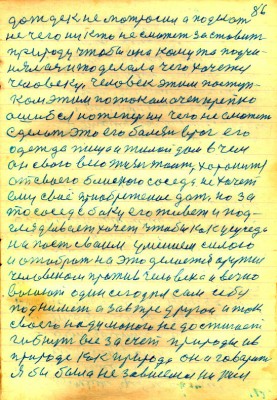 86
дождек не мотросил а поднат
не чего ни кто не сможет заставит
природу чтобы она кому та подчи
нялас и то делала чего хочет
человеку, человек этим поступ
ком этим потоком очен крепко
ошибся но теперич чего не сможет
сделат это его балян враг его
одежда пища и жилой дом в чем
он свого вло жыл хоронит
от своего близкого соседа не хочет
ему своё приобретение дат, но за
то сосед с боку его живет и под
глядывает хочет чтобы как у суседа
на пост своим умением силого
отобрат на это делается аружия
человеком против человека и вечно
воюют один сегодня сам себя
поднимет а завтре другой а так
своего надуманого не достигает
гибнут все за счет природы а в
природе как природа она говарит
Я бы была не зависема ни кем